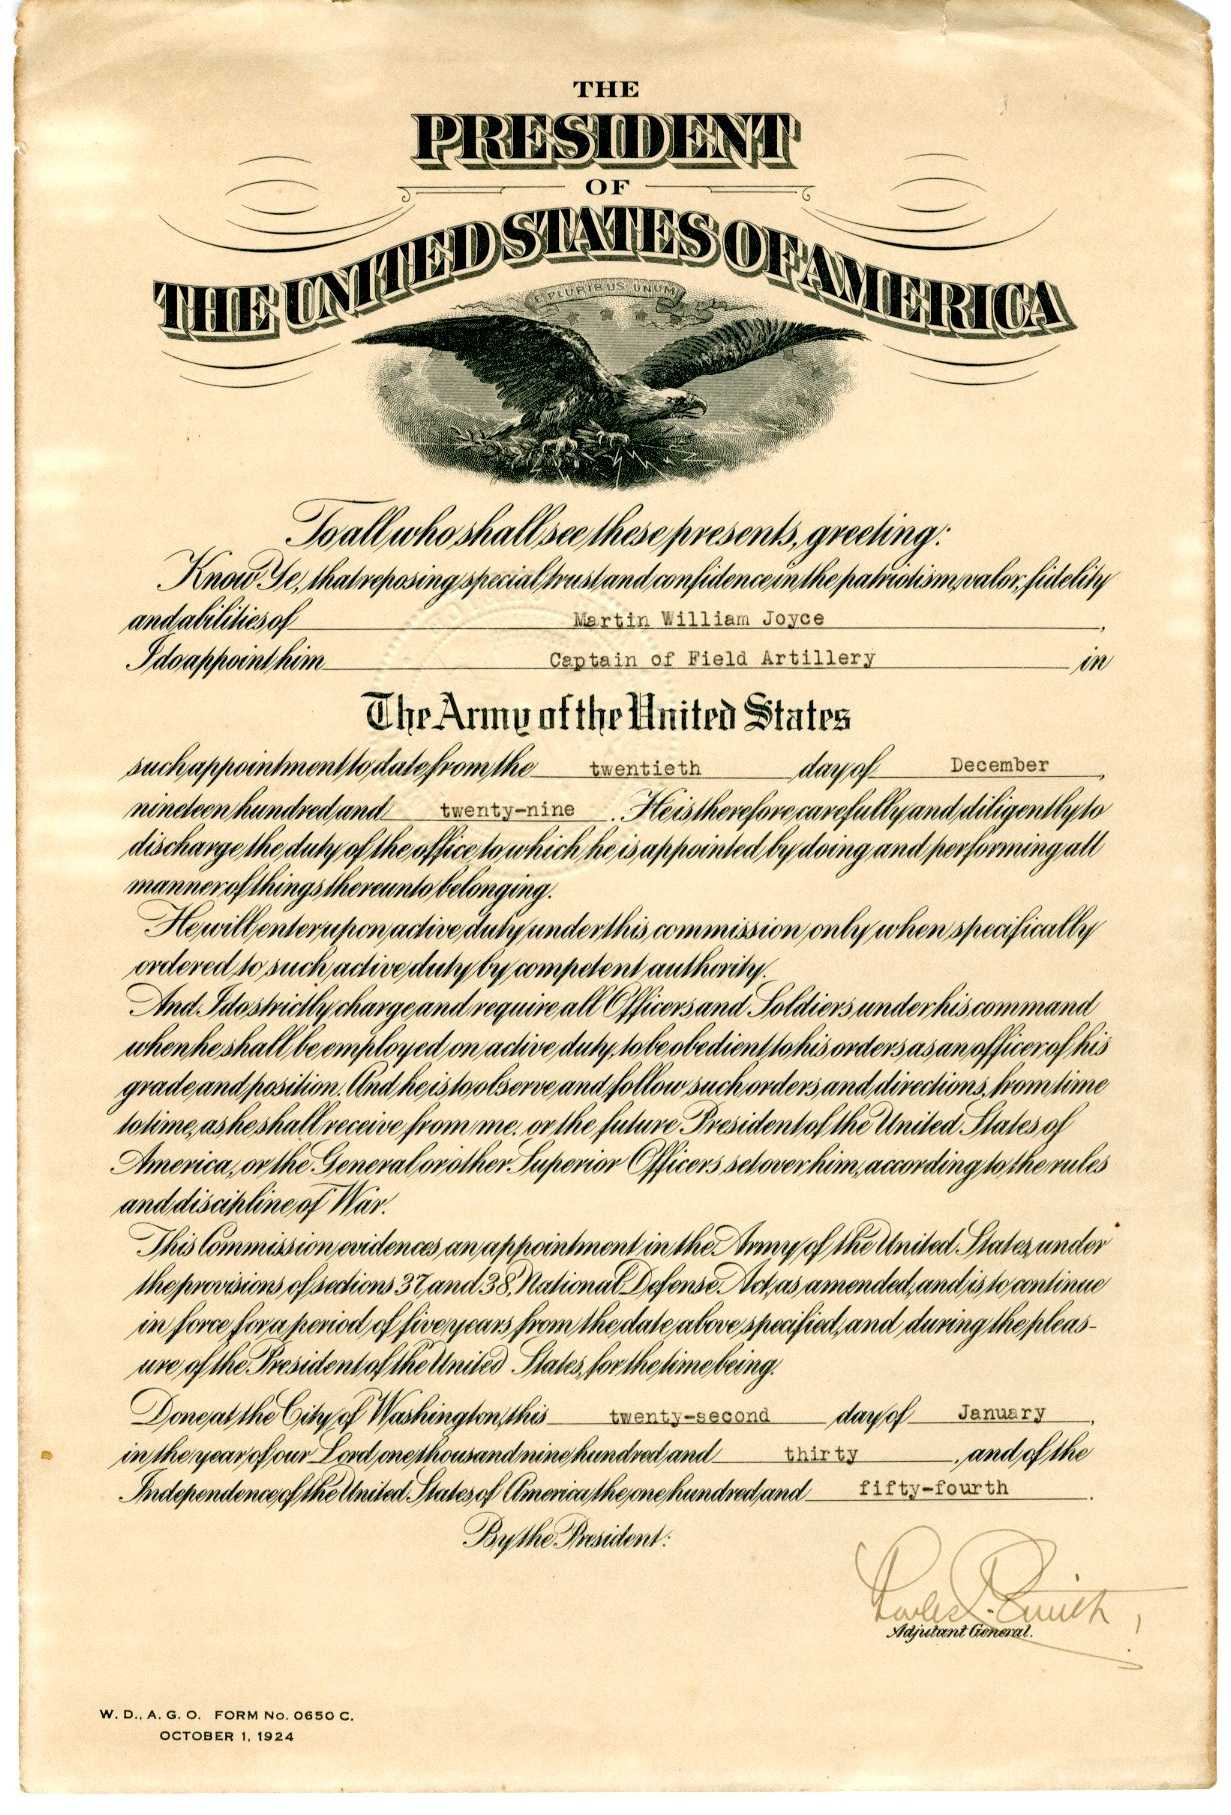 THE
PRESIDENT
OF
THE UNITED STATES OF AMERICA
E PLURIBUS UNUM
To all who shall see these presents, greeting:
Know Ye, that reposing special trust and confidence in the patriotism, valor, fidelity
and abilities of Martin William Joyce,
I do appoint him Captain of Field Artillery in
The Army of the United States
such appointment to date from the twentieth day of December,
nineteen hundred and twenty-nine. He is therefore carefully and diligently to
discharge the duty of the office to which he is appointed by doing and performing all
manner of things thereunto belonging.
He will enter upon active duty under this commission only when specifically
ordered to such active duty by competent authority.
And I do strictly charge and require all Officers and Soldiers under his command
when he shall be employed on active duty, to be obedient to his orders as an officer of his
grade and position. And he is to observe and follow such orders and directions, from time
to time, as he shall receive from me, or the future President of the United States of
America, or the General or other Superior Officers set over him, according to the rules
and discipline of War.
This Commission evidences an appointment in the Army of the United States, under
the provisions of sections 37 and 38, National Defense Act, as amended, and is to continue
in force for a period of five years from the date above specified, and during the pleas-
ure of the President of the United States, for the time being.
Done at the City of Washington, this twenty-second day of January,
in the year of our Lord, one thousand nine hundred and thirty, and of the
Independence of the United States of America, the one hundred and fifty-fourth.
By the President:
Adjutant General.
W. D., A. G. O. FORM No. 0650 C.
OCTOBER 1, 1924